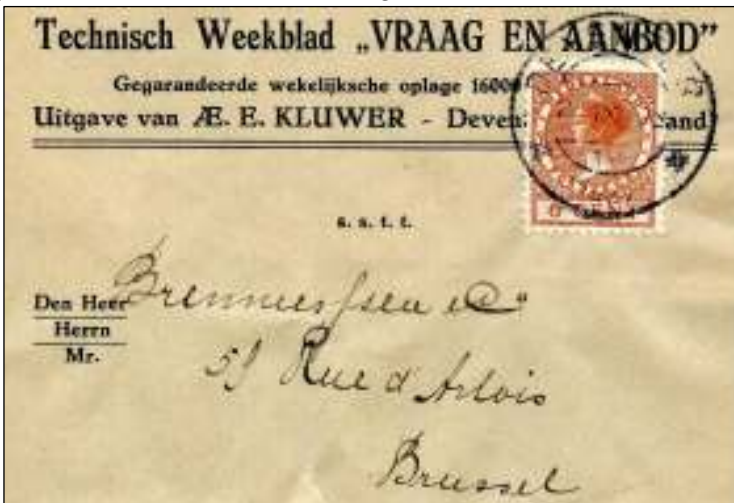 Technisch Weekblad „VRAAG EN AANBOD”
Gegarandeerde wekelijksche oplage 16000
Uitgave van Æ. E. KLUWER - Deven
s. s. t. t.
Den Heer
Herrn
Mr.
Rue d'Artois
Brussel